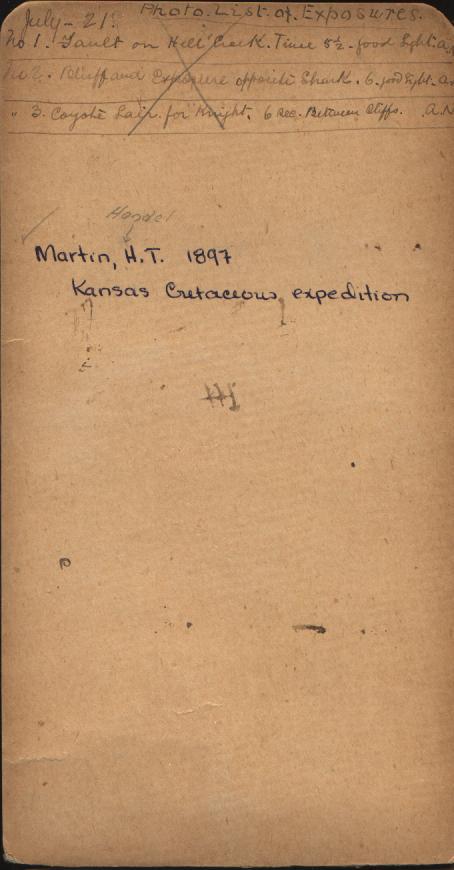 July - 21. Photo. List. of. Exposures.
No 1. Fault on Hell Creek. Time 5½. good light. a.
No 2. Bluff and Exposure opposite Shark. 6. good light. a
" 3. Coyote Lair. for Knight. 6 sec. Between Cliffs. A.
Martin, H.T. 1897
Kansas Cretaceous expedition